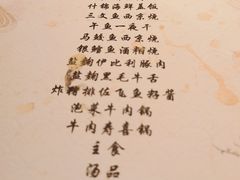 什锦海鲜盖饭
三文鱼西京烧
午鱼一夜干
马鲛鱼西京烧
银鳕鱼酒粕烧
盐麹伊比利豚肉
盐麹黑毛牛舌
炸猪排佐飞鱼籽酱
泡菜牛肉锅
牛肉寿喜锅
主食
汤品